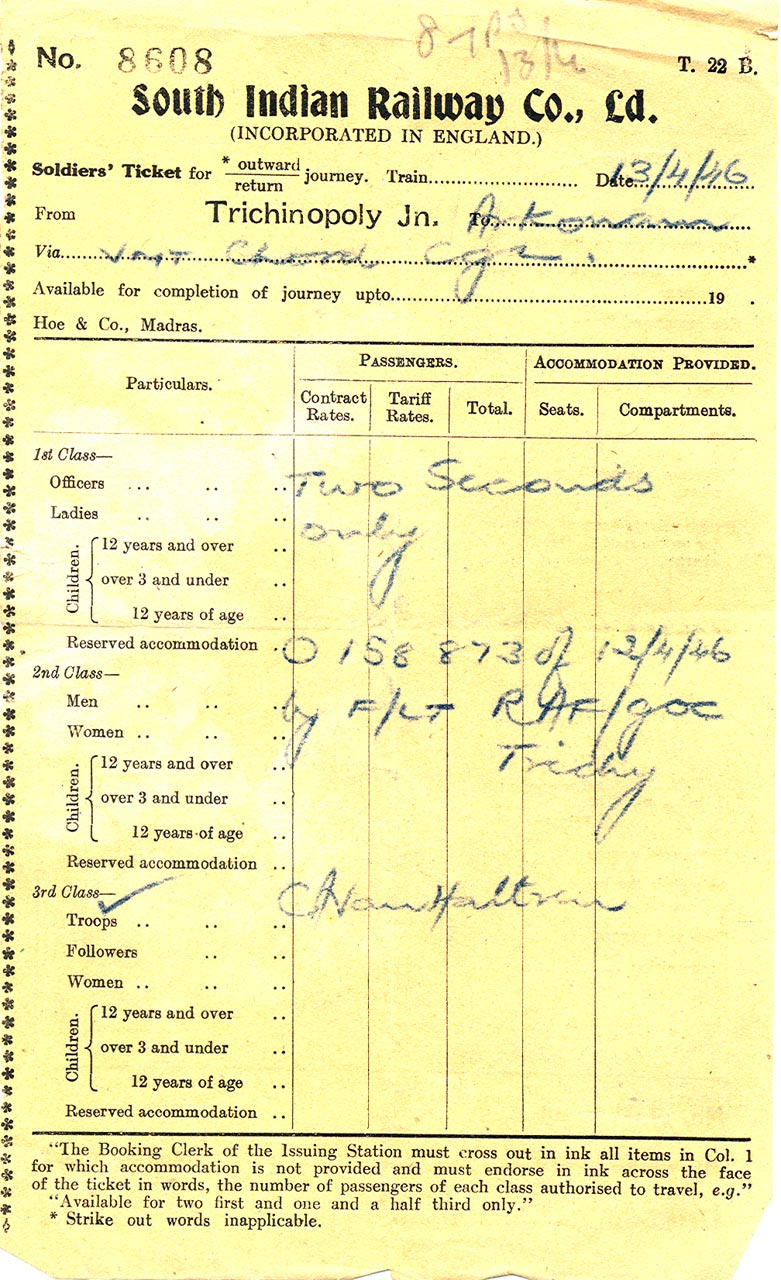 8 7 13/4
No. 8608 T. 22 B.
South Indian Railway Co., Ld.
(INCORPORATED IN ENGLAND.)
Soldiers' Ticket for * outward / return journey. Train.......... Date 13/4/46
From Trichinopoly Jn. To Arkonam
Via ..... Cgl. *
Available for completion of journey upto..........19 .
Hoe & Co., Madras.
Particulars. PASSENGERS. ACCOMMODATION PROVIDED.
Contract Rates. Tariff Rates. Total. Seats. Compartments.
1st Class—
Officers .. .. .. Two Seconds
Ladies .. .. .. only
Children. 12 years and over ..
over 3 and under ..
12 years of age ..
Reserved accommodation .. O 158 873 of 12/4/46
2nd Class—
Men .. .. .. by F/LT RAF/goc
Women .. .. .. Trichy
Children. 12 years and over ..
over 3 and under ..
12 years of age ..
Reserved accommodation ..
3rd Class—
Troops .. .. ..
Followers .. ..
Women .. .. ..
Children. 12 years and over ..
over 3 and under ..
12 years of age ..
Reserved accommodation ..
"The Booking Clerk of the Issuing Station must cross out in ink all items in Col. 1
for which accommodation is not provided and must endorse in ink across the face
of the ticket in words, the number of passengers of each class authorised to travel, e.g."
"Available for two first and one and a half third only."
* Strike out words inapplicable.